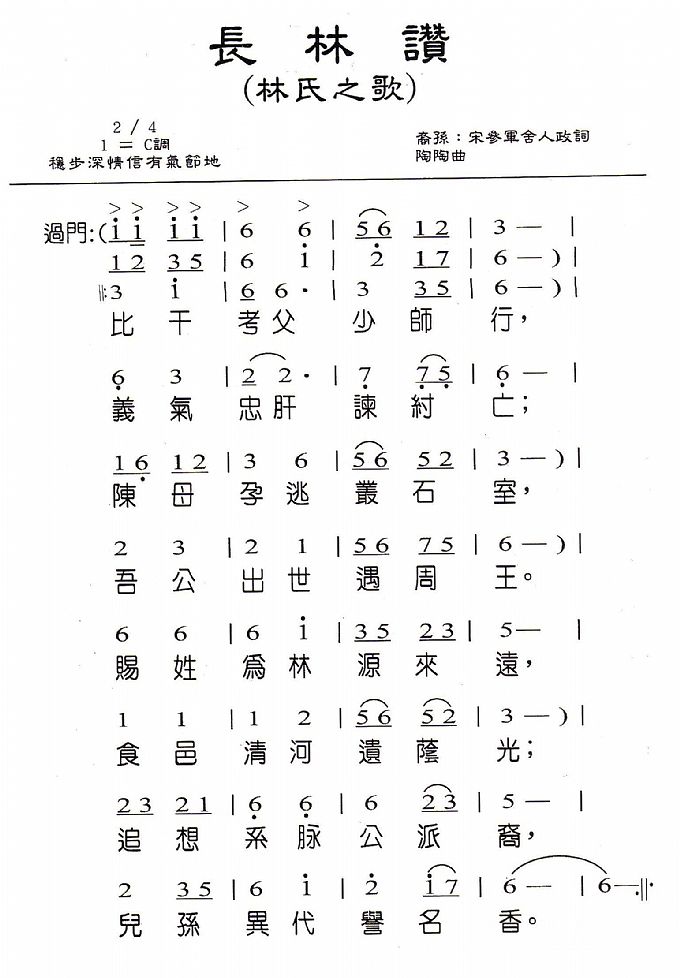 長林讚
(林氏之歌)
2/4
1=C調
穩步深情信有氣節地
裔孫:宋參軍舍人政詞
陶陶曲
過門:(i i i i | 6 6 | 56 12 | 3— |
12 35 | 6 i | 2 17 | 6—)|
‖:3 i | 6 6· | 3 35 | 6—)|
比干考父少師行,
6 3 | 2 2· | 7 75 | 6— |
義氣忠肝諫紂亡;
16 12 | 3 6 | 56 52 | 3—)|
陳母孕逃叢石室,
2 3 | 2 1 | 56 75 | 6—)|
吾公出世遇周王。
6 6 | 6 i | 35 23 | 5— |
賜姓為林源來遠,
1 1 | 1 2 | 56 52 | 3—)|
食邑清河遺蔭光;
23 21 | 6 6 | 6 23 | 5— |
追想系脉公派裔,
2 35 | 6 i | 2 i7 | 6— | 6—:‖
兒孫異代譽名香。